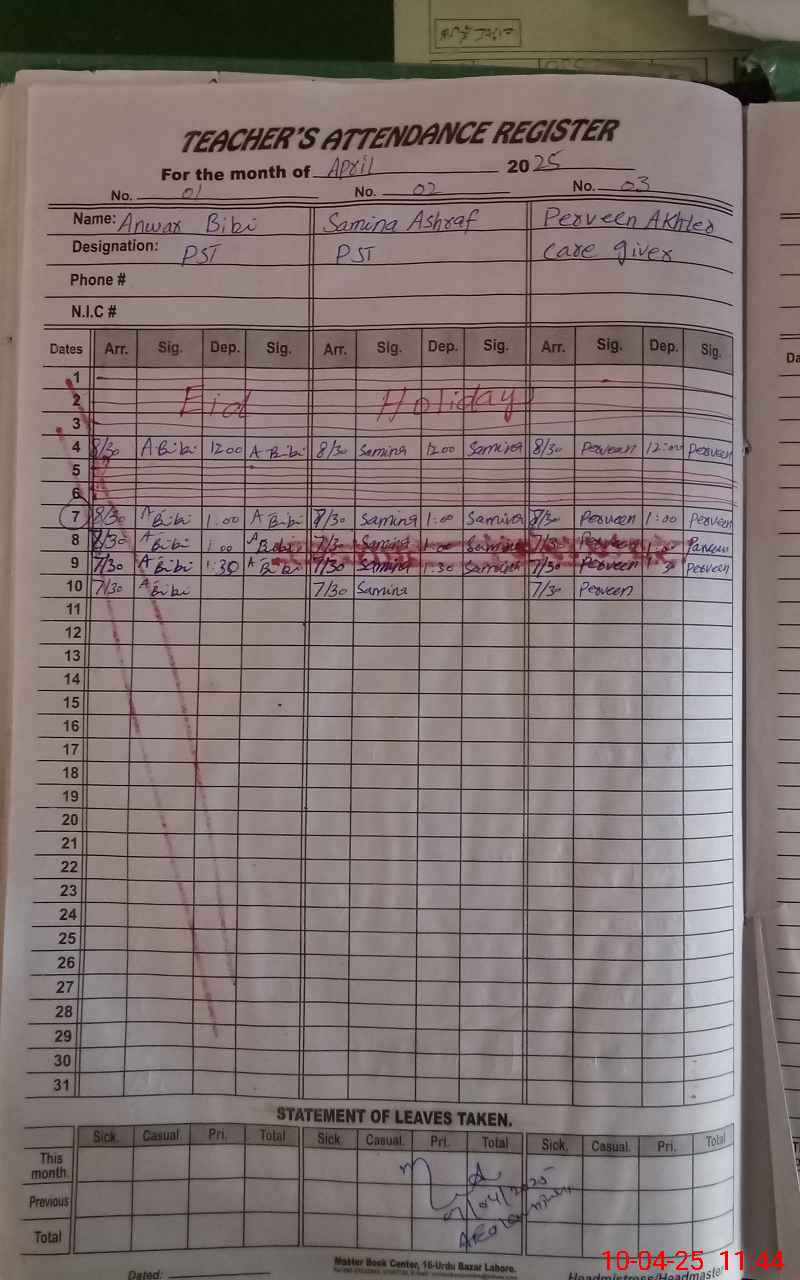 TEACHER'S ATTENDANCE REGISTER
For the month of April 2025
No. 01 No. 02 No. 03
Name: Anwar Bibi Samina Ashraf Perveen Akhter
Designation: PST PST care giver
Phone #
N.I.C #
Dates Arr. Sig. Dep. Sig. Arr. Sig. Dep. Sig. Arr. Sig. Dep. Sig.
1
2 Eid Holiday
3
4 8/30 A Bibi 1200 A Bibi 8/30 Samina 1200 Samina 8/30 Perveen 12:00 Perveen
5
6
7 8/30 A Bibi 1:00 A Bibi 8/30 Samina 1:00 Samina 8/30 Perveen 1:00 Perveen
8 8/30 A Bibi 1:00 A Bibi 7/30 Samina 1:00 Samina 7/30 Perveen 1:00 Parveen
9 7/30 A Bibi 1:30 A Bibi 7/30 Samina 1:30 Samina 7/30 Perveen Perveen
10 7/30 A Bibi 7/30 Samina 7/30 Perveen
11
12
13
14
15
16
17
18
19
20
21
22
23
24
25
26
27
28
29
30
31
STATEMENT OF LEAVES TAKEN.
Sick. Casual. Pri. Total Sick. Casual. Pri. Total Sick. Casual. Pri. Total
This month.
Previous
Total
07/04/2025
AEO
Master Book Center, 16-Urdu Bazar Lahore.
Dated: Headmistress/Headmaster
10-04-25 11:44
Da